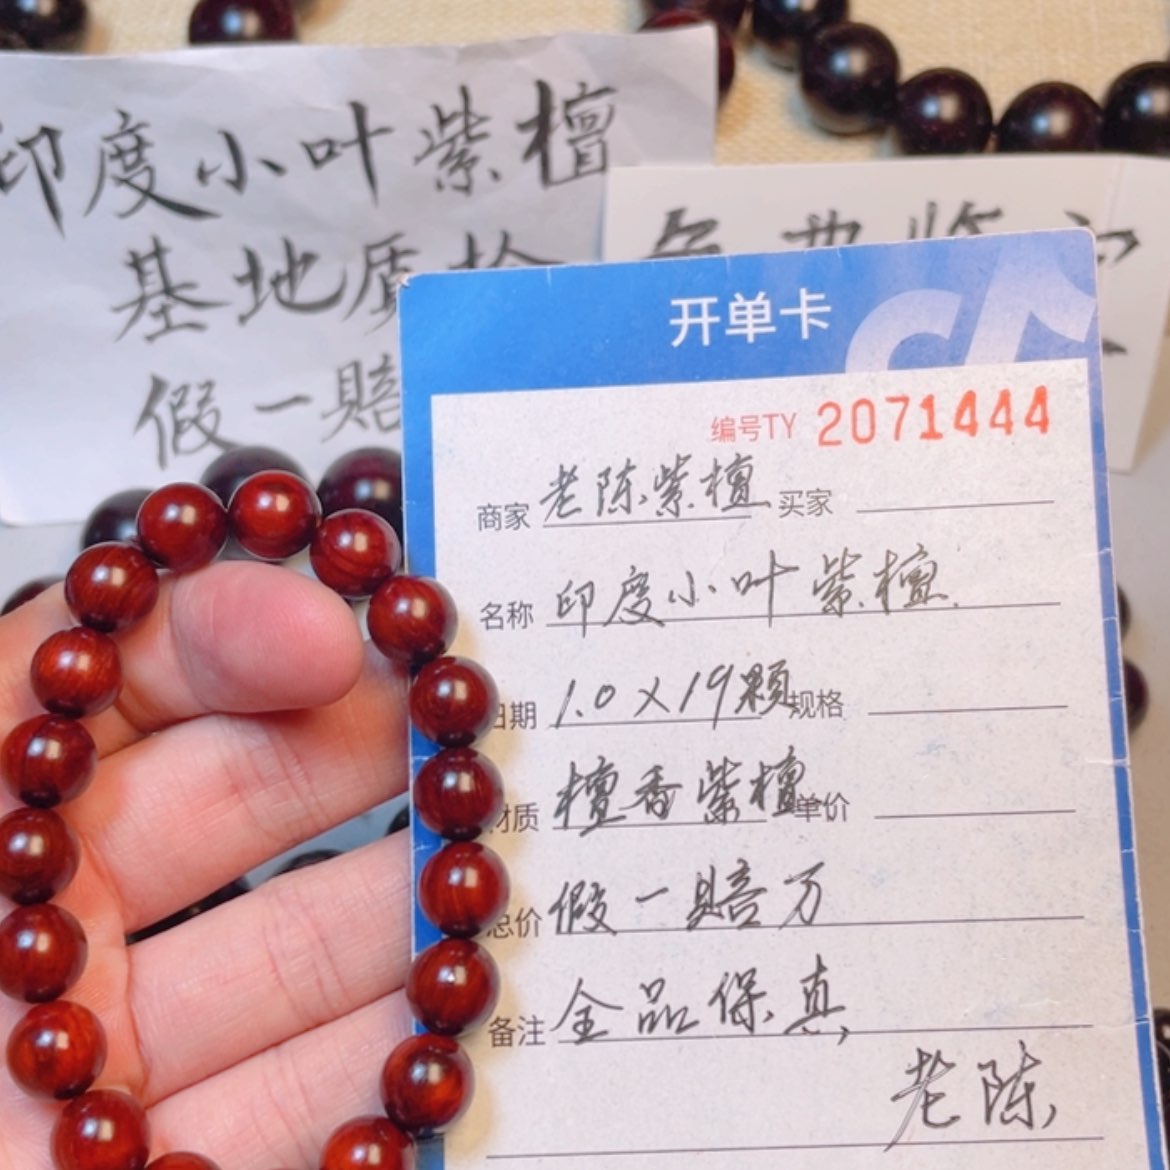 印度小叶紫檀
基地質检
假一賠
免费鉴定
开单卡
编号TY 2071444
商家 老陈紫檀 买家
名称 印度小叶紫檀
日期 1.0×19颗 规格
材质 檀香紫檀 单价
总价 假一赔万
备注 全品保真,
老陈,